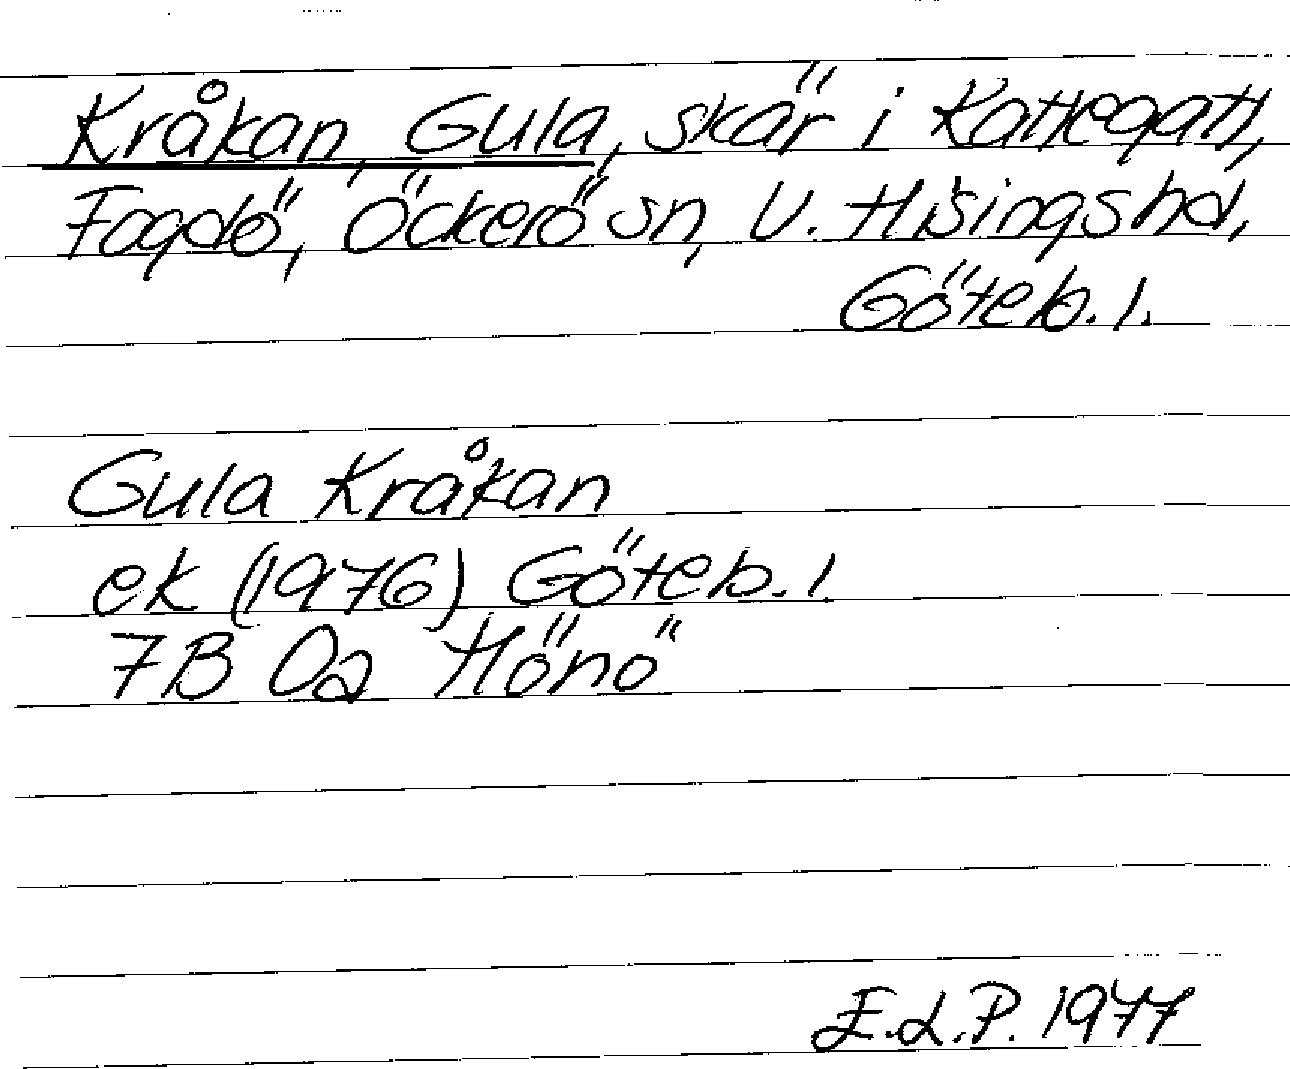 Kråkan, Gula, skär i Kattegatt,
Fogdö, Öckerö sn, V. Hisingshd,
Göteb. l.
Gula Kråkan
ek (1976) Göteb. l.
7B 0a Hönö
E.L.P. 1977